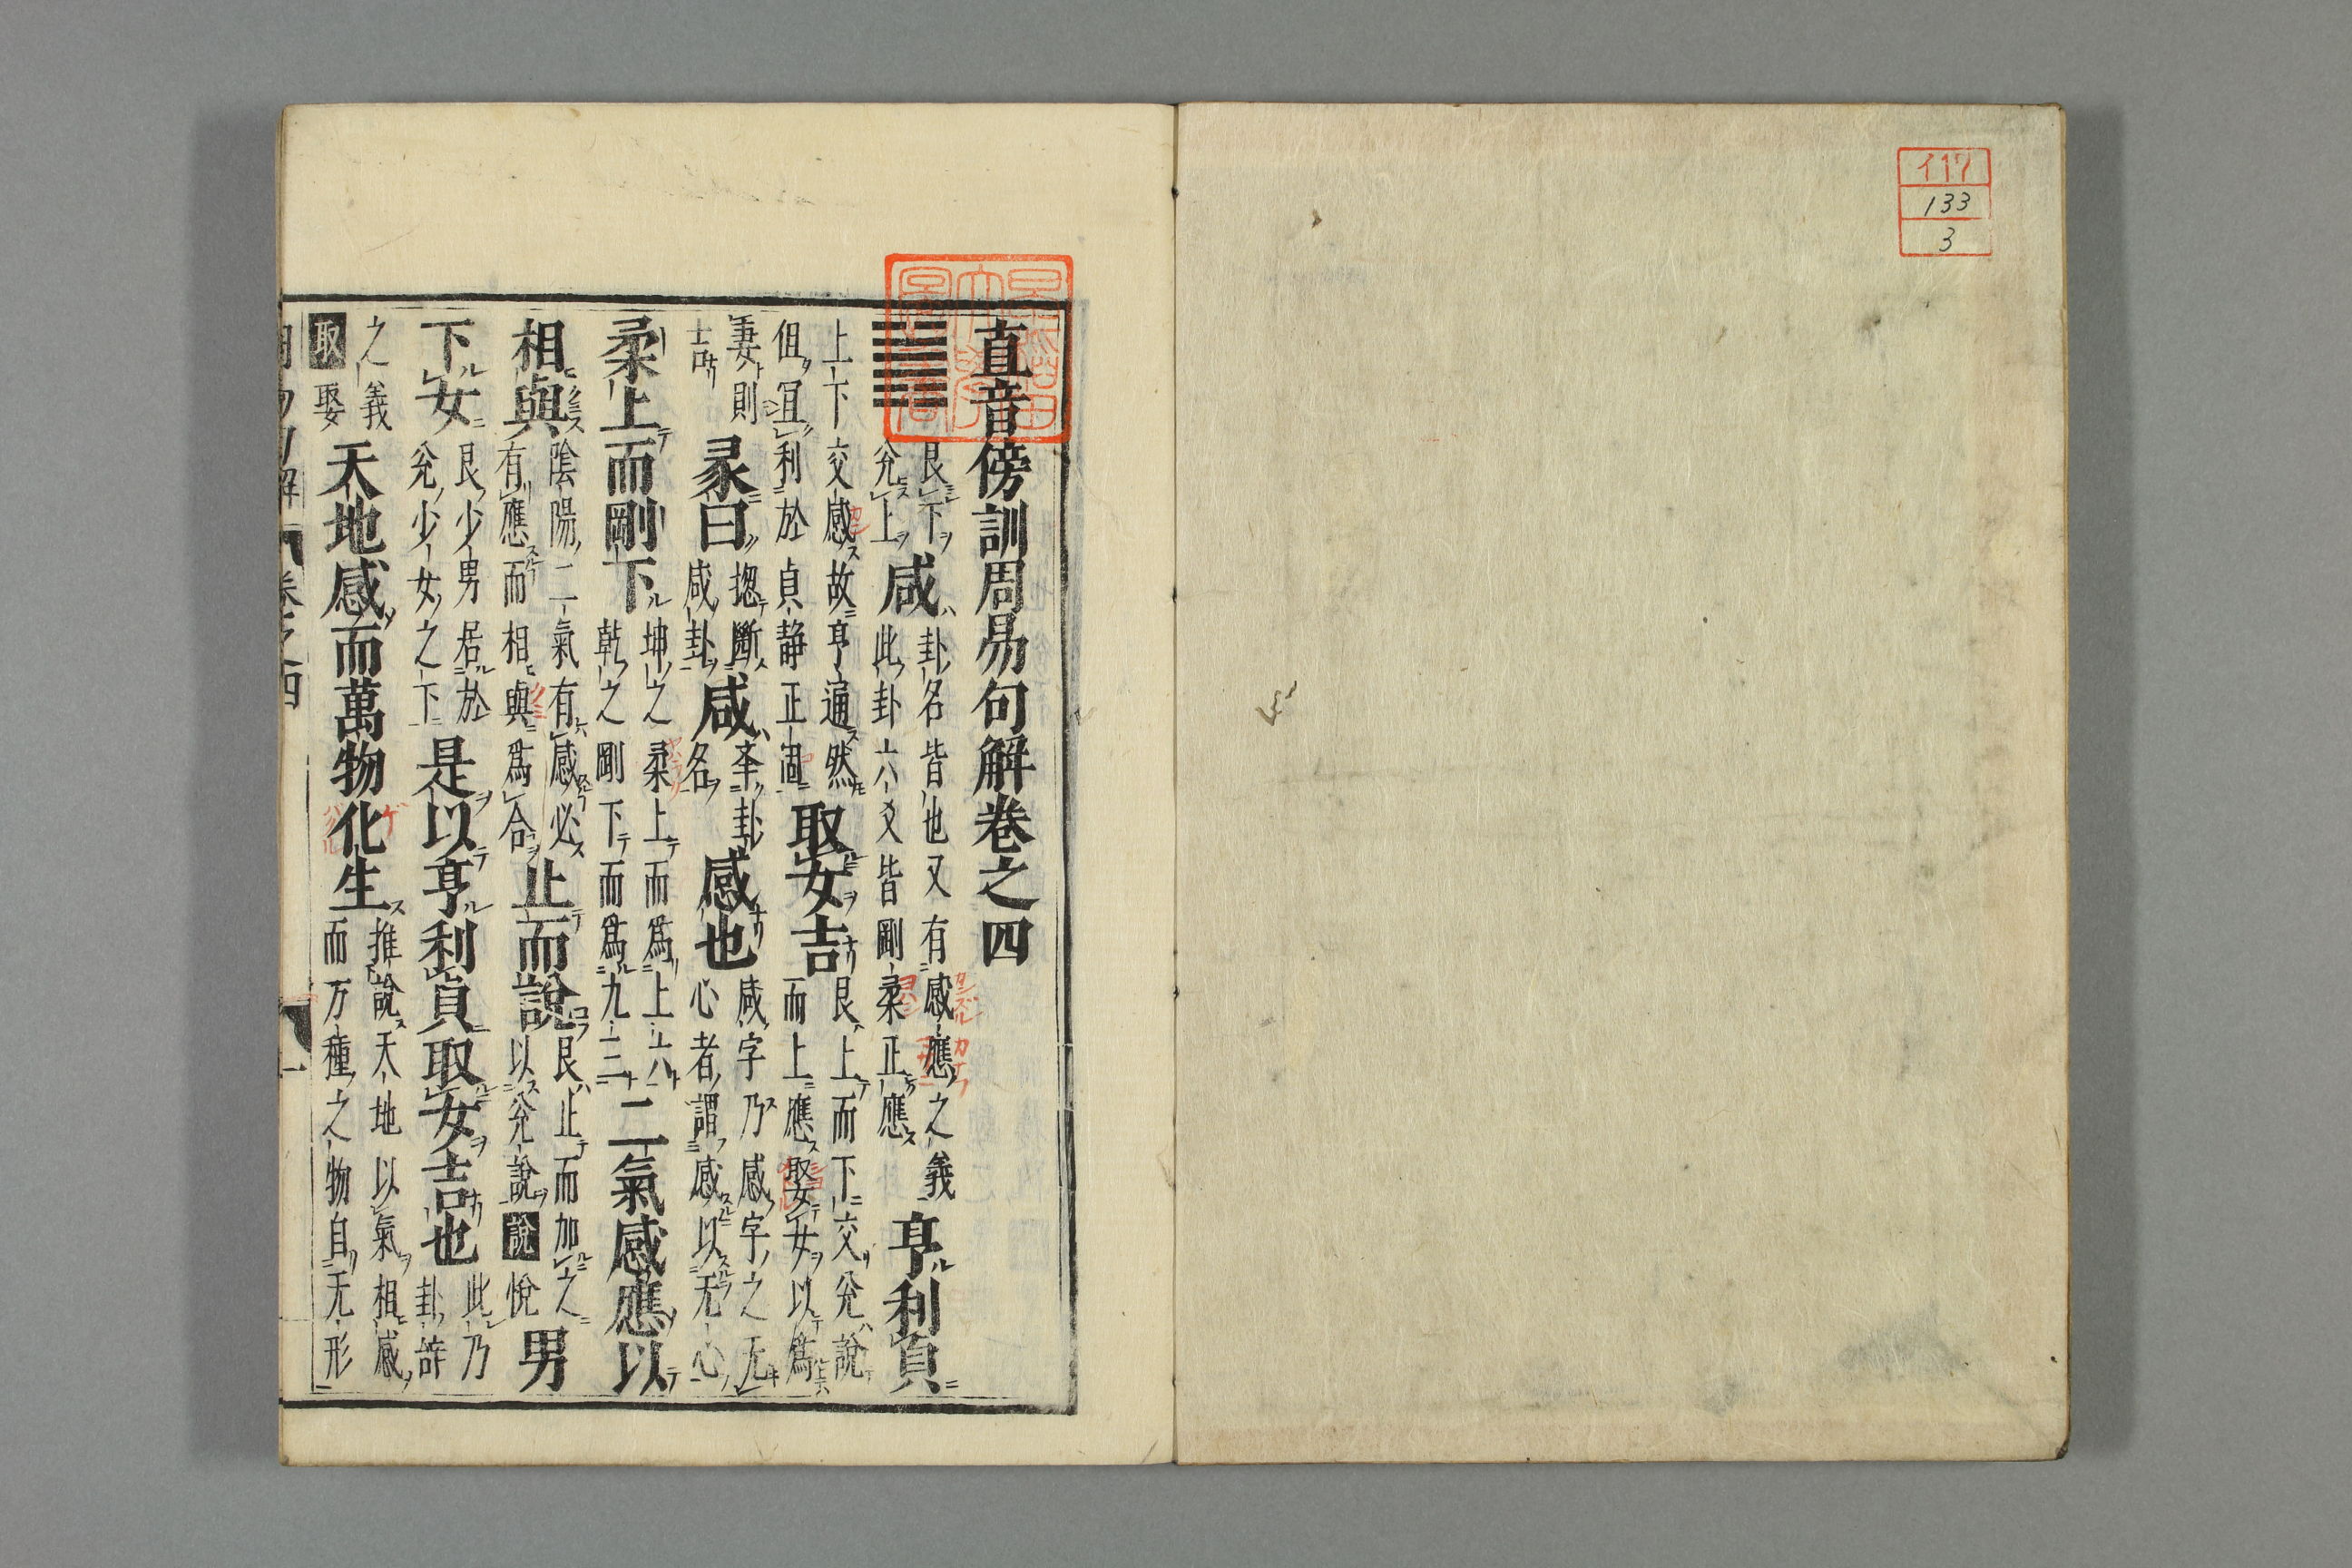 イ17
133
3
直音傍訓周易句解卷之四
艮下兌上咸卦名皆也又有感應之義此卦六爻皆剛柔正應亨利貞
上下交感故亨通然但冝利於貞静正固取女吉艮上而下交兌說而上應娶女以為
妻則吉彖曰揔斷咸卦咸夲卦名感也咸字乃感字之无心者謂感以无心
柔上而剛下坤之柔上而為上六乾之剛下而為九三二氣感應以
相與陰陽二氣有感必有應而相與為合止而說艮止而加之以兌說說悅男
下女艮少男居於兌少女之下是以亨利貞取女吉也此乃卦辞
之義取娶天地感而萬物化生推說天地以氣相感而万種之物自无形